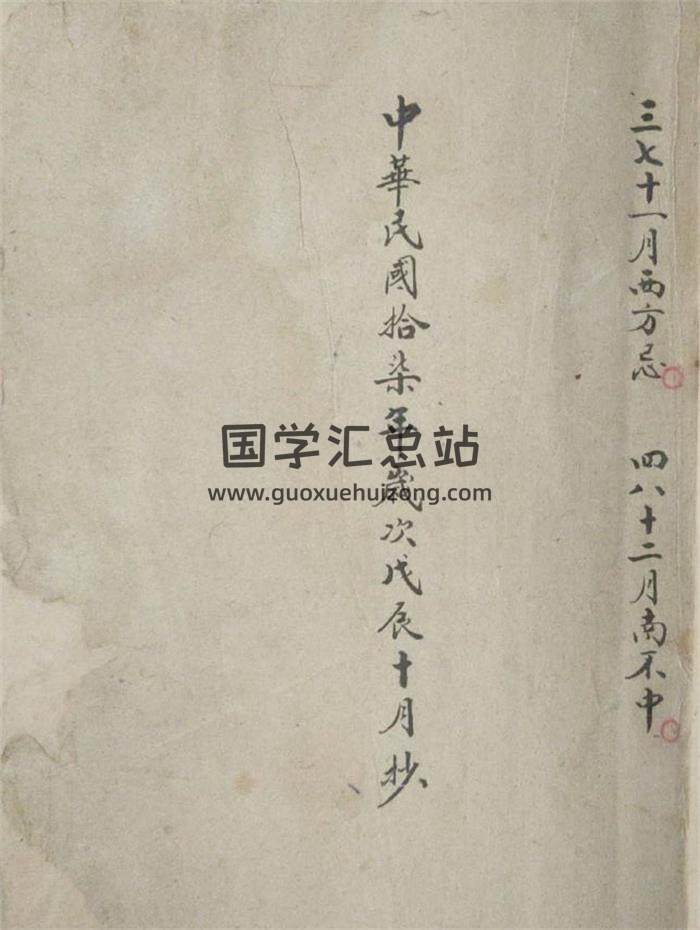 三七十一月西方忌 四八十二月南不中
中華民國拾柒年歲次戊辰十月抄
国学汇总站
www.guoxuehuizong.com